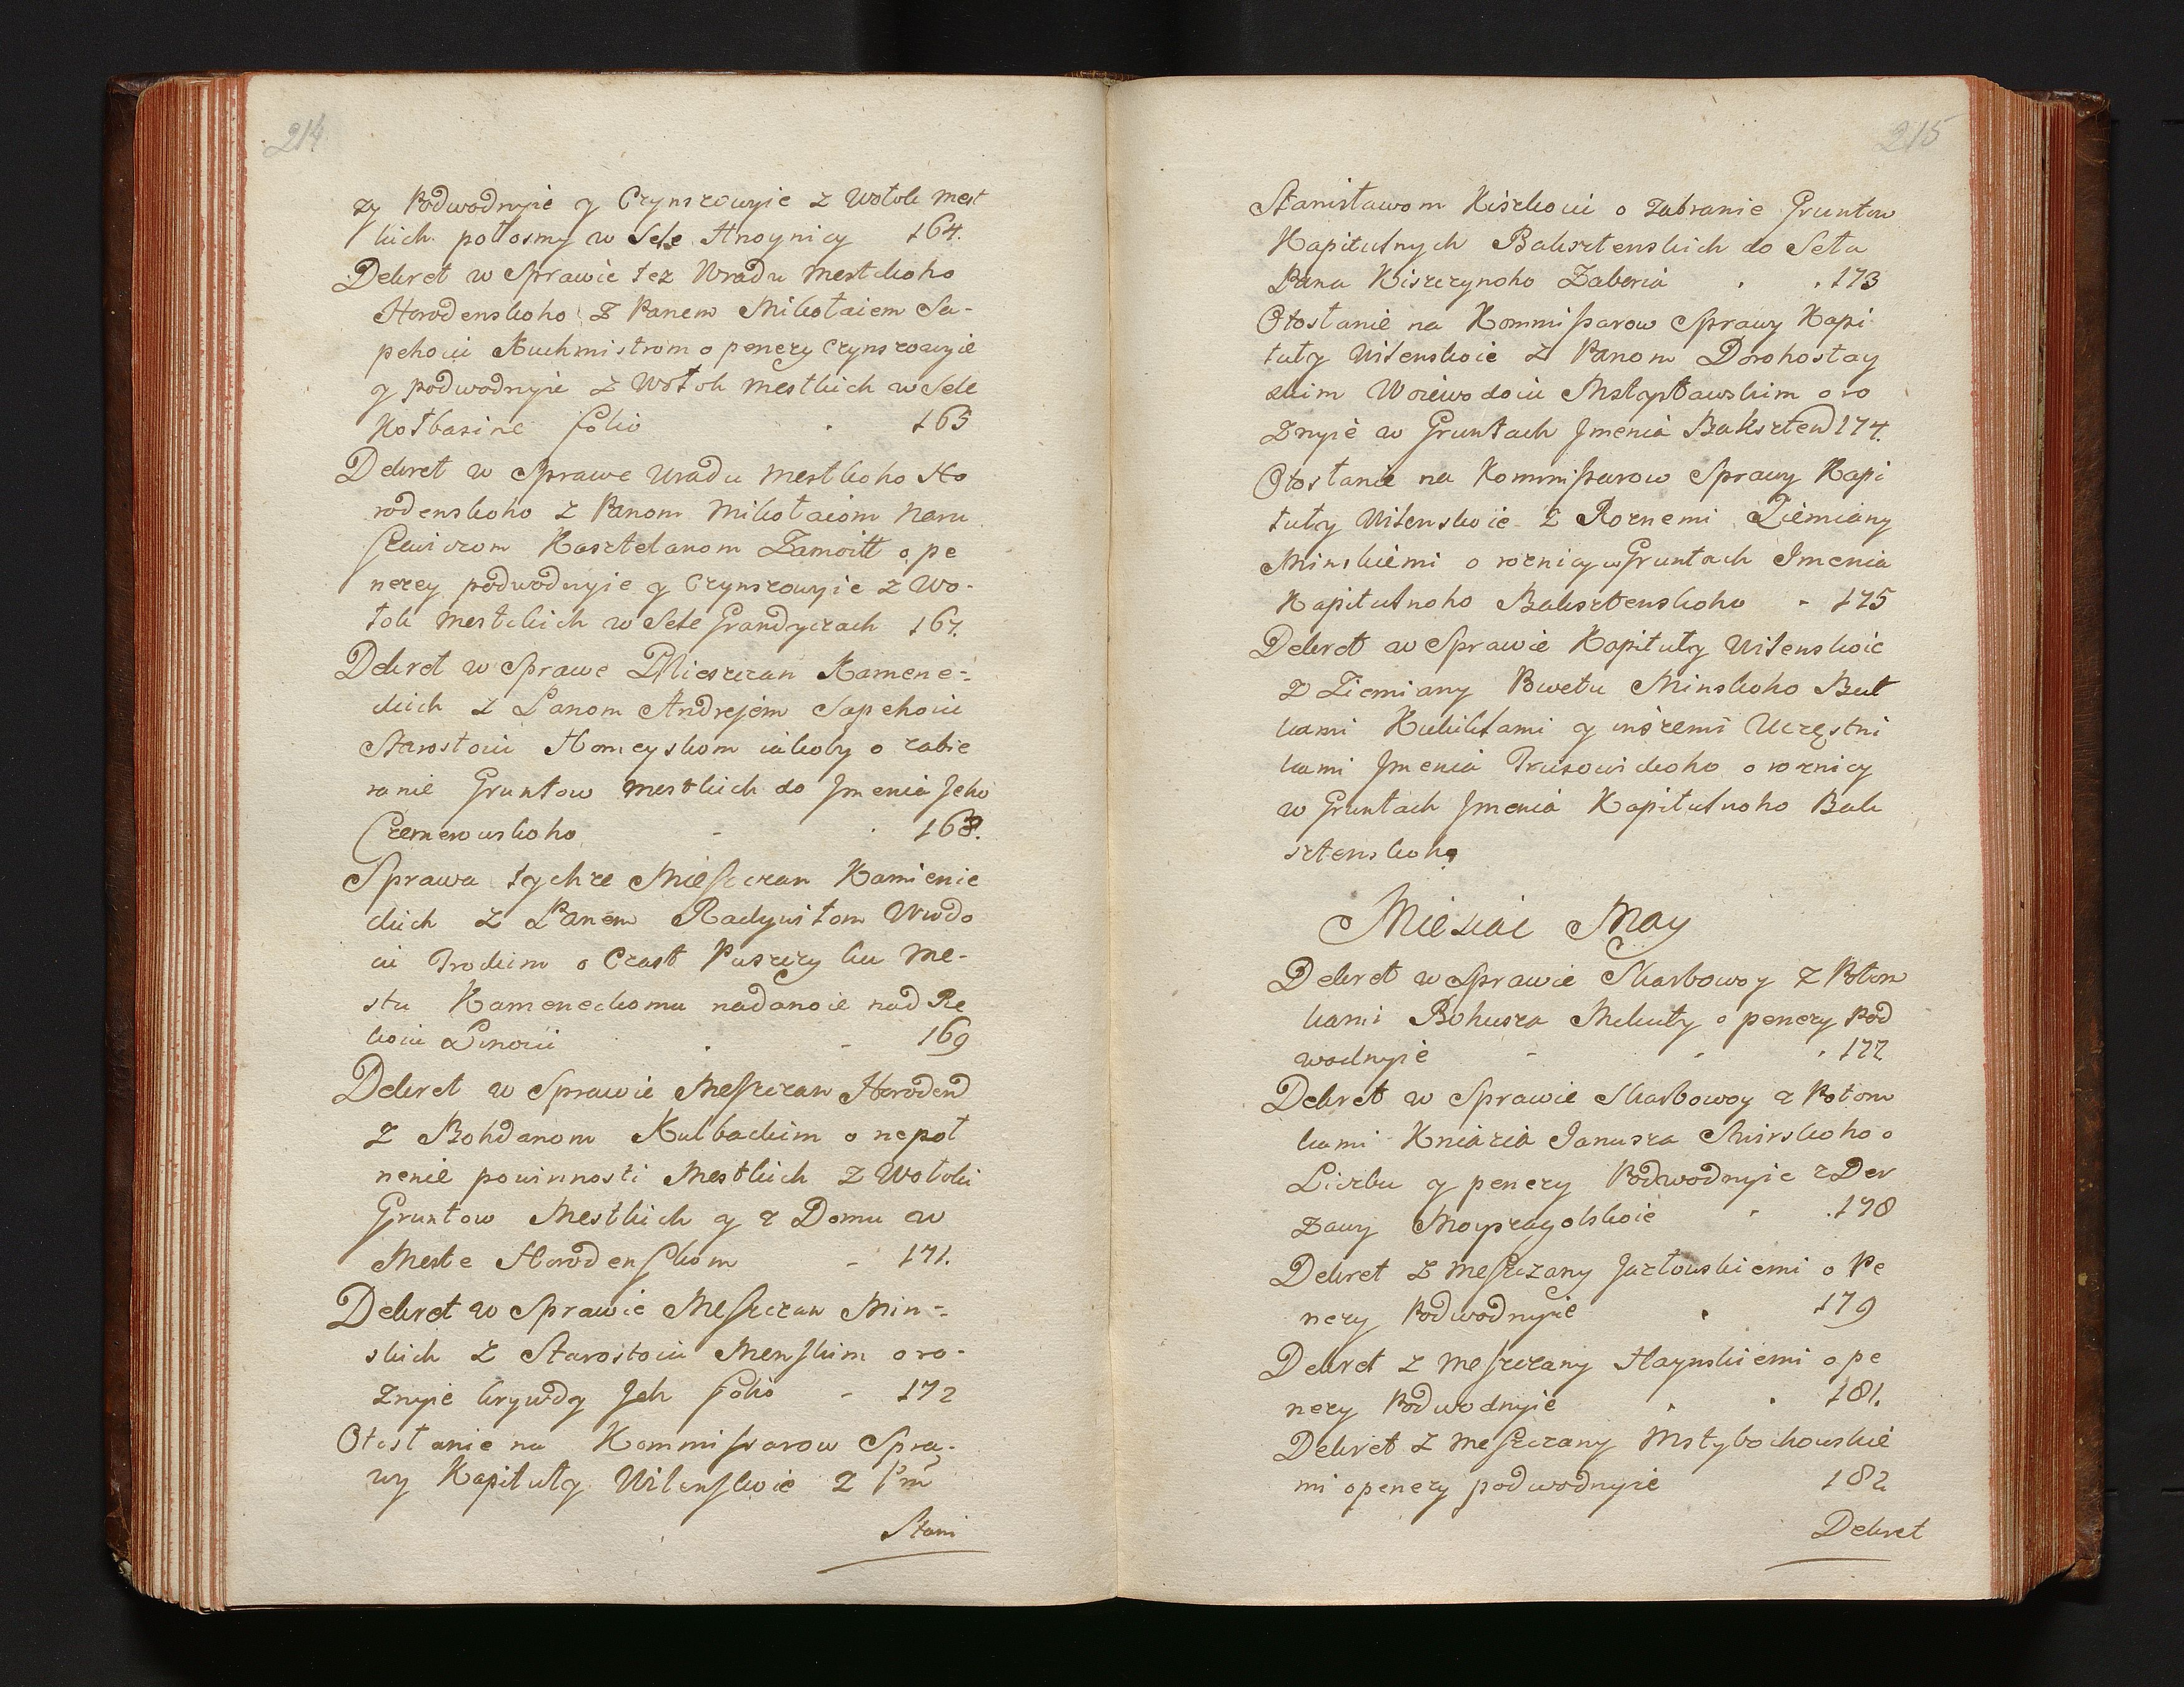 214
zy Podwodnyie y Czynszowyie z Wołok mest
kich położmy w Sele Hnoynicy 164.
Dekret w Sprawie tez Wradu mestckoho
Horodenskoho Z Panem Mikołaiem Sa-
pehoiu Kuchmistrom o penezy czynszowyie
y podwodnyie z Wołok mestkich w Sele
Kołbasine folio 165
Dekret w Sprawe Uradu mestkoho Ho
rodenskoho z Panom Mikołaiom Naru
szewiczom Kasztelanom Zamoitt o pe
nezey podwodnyie y Czynszowyie z Wo-
łok mestckich w Sele Grandyczach 167.
Dekret w Sprawe Mieszczan Kamene-
ckich z Panom Andrejem Sapehoiu
Starostoiu Homeyskom iakoby o zabie
ranie Gruntow mestkich do Jmenia Jeho
Czemerowskoho 168.
Sprawa tychze Mieszczan Kamienie
ckich z Panem Radywiłom Wwdo
iu Trockim o Czast Puszczy ku Me-
stu Kameneckomu nadanoie nad Re
koiu Lsnoiu 169
Dekret w Sprawie Meszczan Horoden
z Bohdanom Kulbackim o nepoł
nenie powinnosti Mestkich z Wołoki
Gruntow Mestkich y z Domu w
Meste Horodenskom 171.
Dekret w Sprawie Meszczan Min-
skich z Starostoiu Menskim o ro-
znyie krywdy Jch folio 172
Otosłanie na Kommissarow Spra-
wy Kapituły Wilenskoie z Pm
Stani
215
Stanisławom Kiszkoiu o zabranie Gruntow
Kapitulnych Baksztenskich do Sela
Pana Kiszczynoho Zaberia 173
Otosłanie na Kommissarow Sprawy Kapi
tuły Wilenskoie z Panom Dorohostay
skim Woiewodoiu Mstysławskim o ro
znyie w Gruntach Jmenia Bakszten 174.
Otosłanie na Kommissarow Sprawy Kapi
tuły Wilenskoie z Roznemi Ziemiany
Minskiemi o roznicy w Gruntach Jmenia
Kapitulnoho Baksztenskoho 175
Dekret w Sprawie Kapituły Wilenskoie
z Ziemiany Pwetu Minskoho But
kami Kukiłkami y inszemi Uczęstni
kami Jmenia Trusowickoho o roznicy
w Gruntach Jmenia Kapitulnoho Bak
sztenskoho
Miesiac May
Dekret w Sprawie Skarbowoy z Potom
kami Bohusza Mekuty o penezy Pod
wodnyie 177
Dekret w Sprawie Skarbowoy z Potom
kami Kniazia Janusza Swirskoho o
Liczbu y penezy Podwodnyie z Der
zawy Moyszagolskoie 178
Dekret z Meszczany Jazłowskiemi o Pe
nezy Podwodnyie 179
Dekret z Meszczany Haynskiemi o pe
nezy Podwodnyie 181.
Dekret z Meszczany Mstybochowskie
mi o penezy podwodnyie 182
Dekret